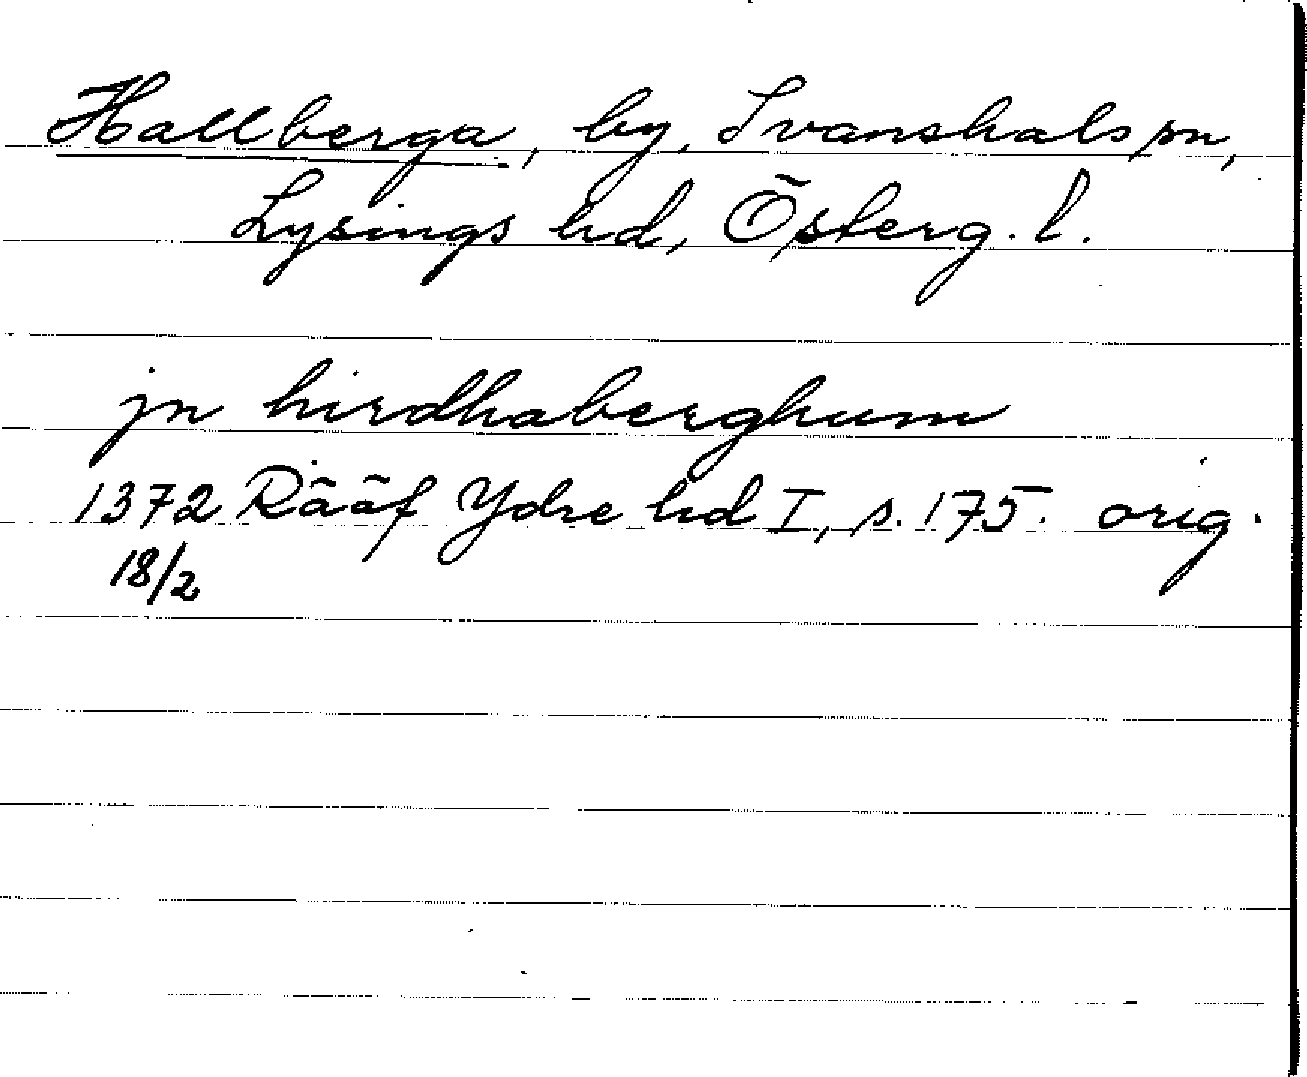 Hallberga, by, Svanshals sn,
Lysings hd, Österg. l.
jn hirdhaberghum
1372 Rääf Ydre hd I, s. 175. orig.
18/2